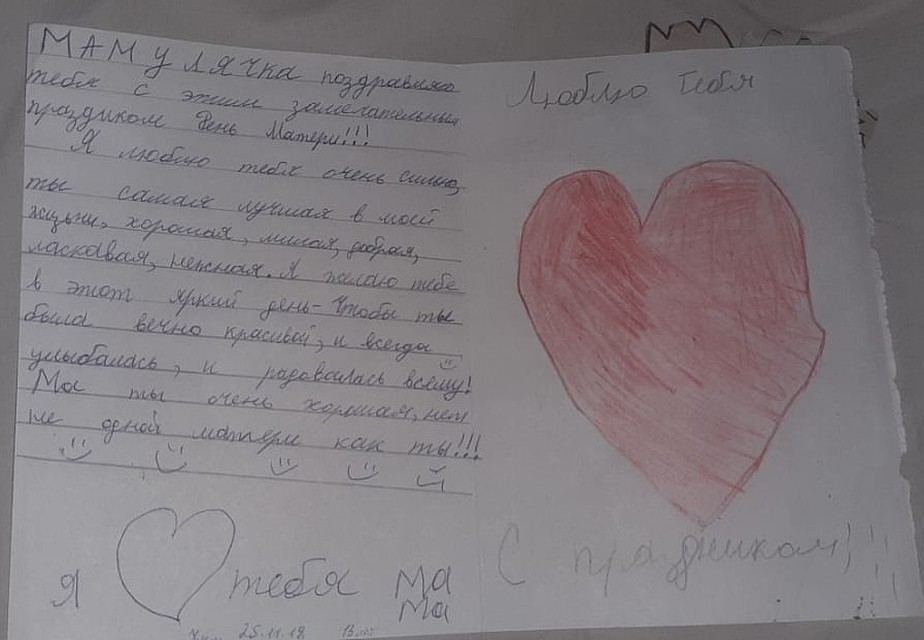 МАМУЛЯЧКА поздравляю
тебя с этим замечательным
праздником День Матери!!!
Я люблю тебя очень сильно,
ты самая лучшая в моей
жизьни, хорошая, милая, добрая,
ласкавая, нежная. Я желаю тебе
в этот яркий день - Чтобы ты
была вечно красивой, и всегда
улыбалась, и радовалась всему!
Ма ты очень хорошая, нет
не одной матери как ты!!!
Я тебя МаМа
25.11.18
Люблю Тебя
С праздником)!!